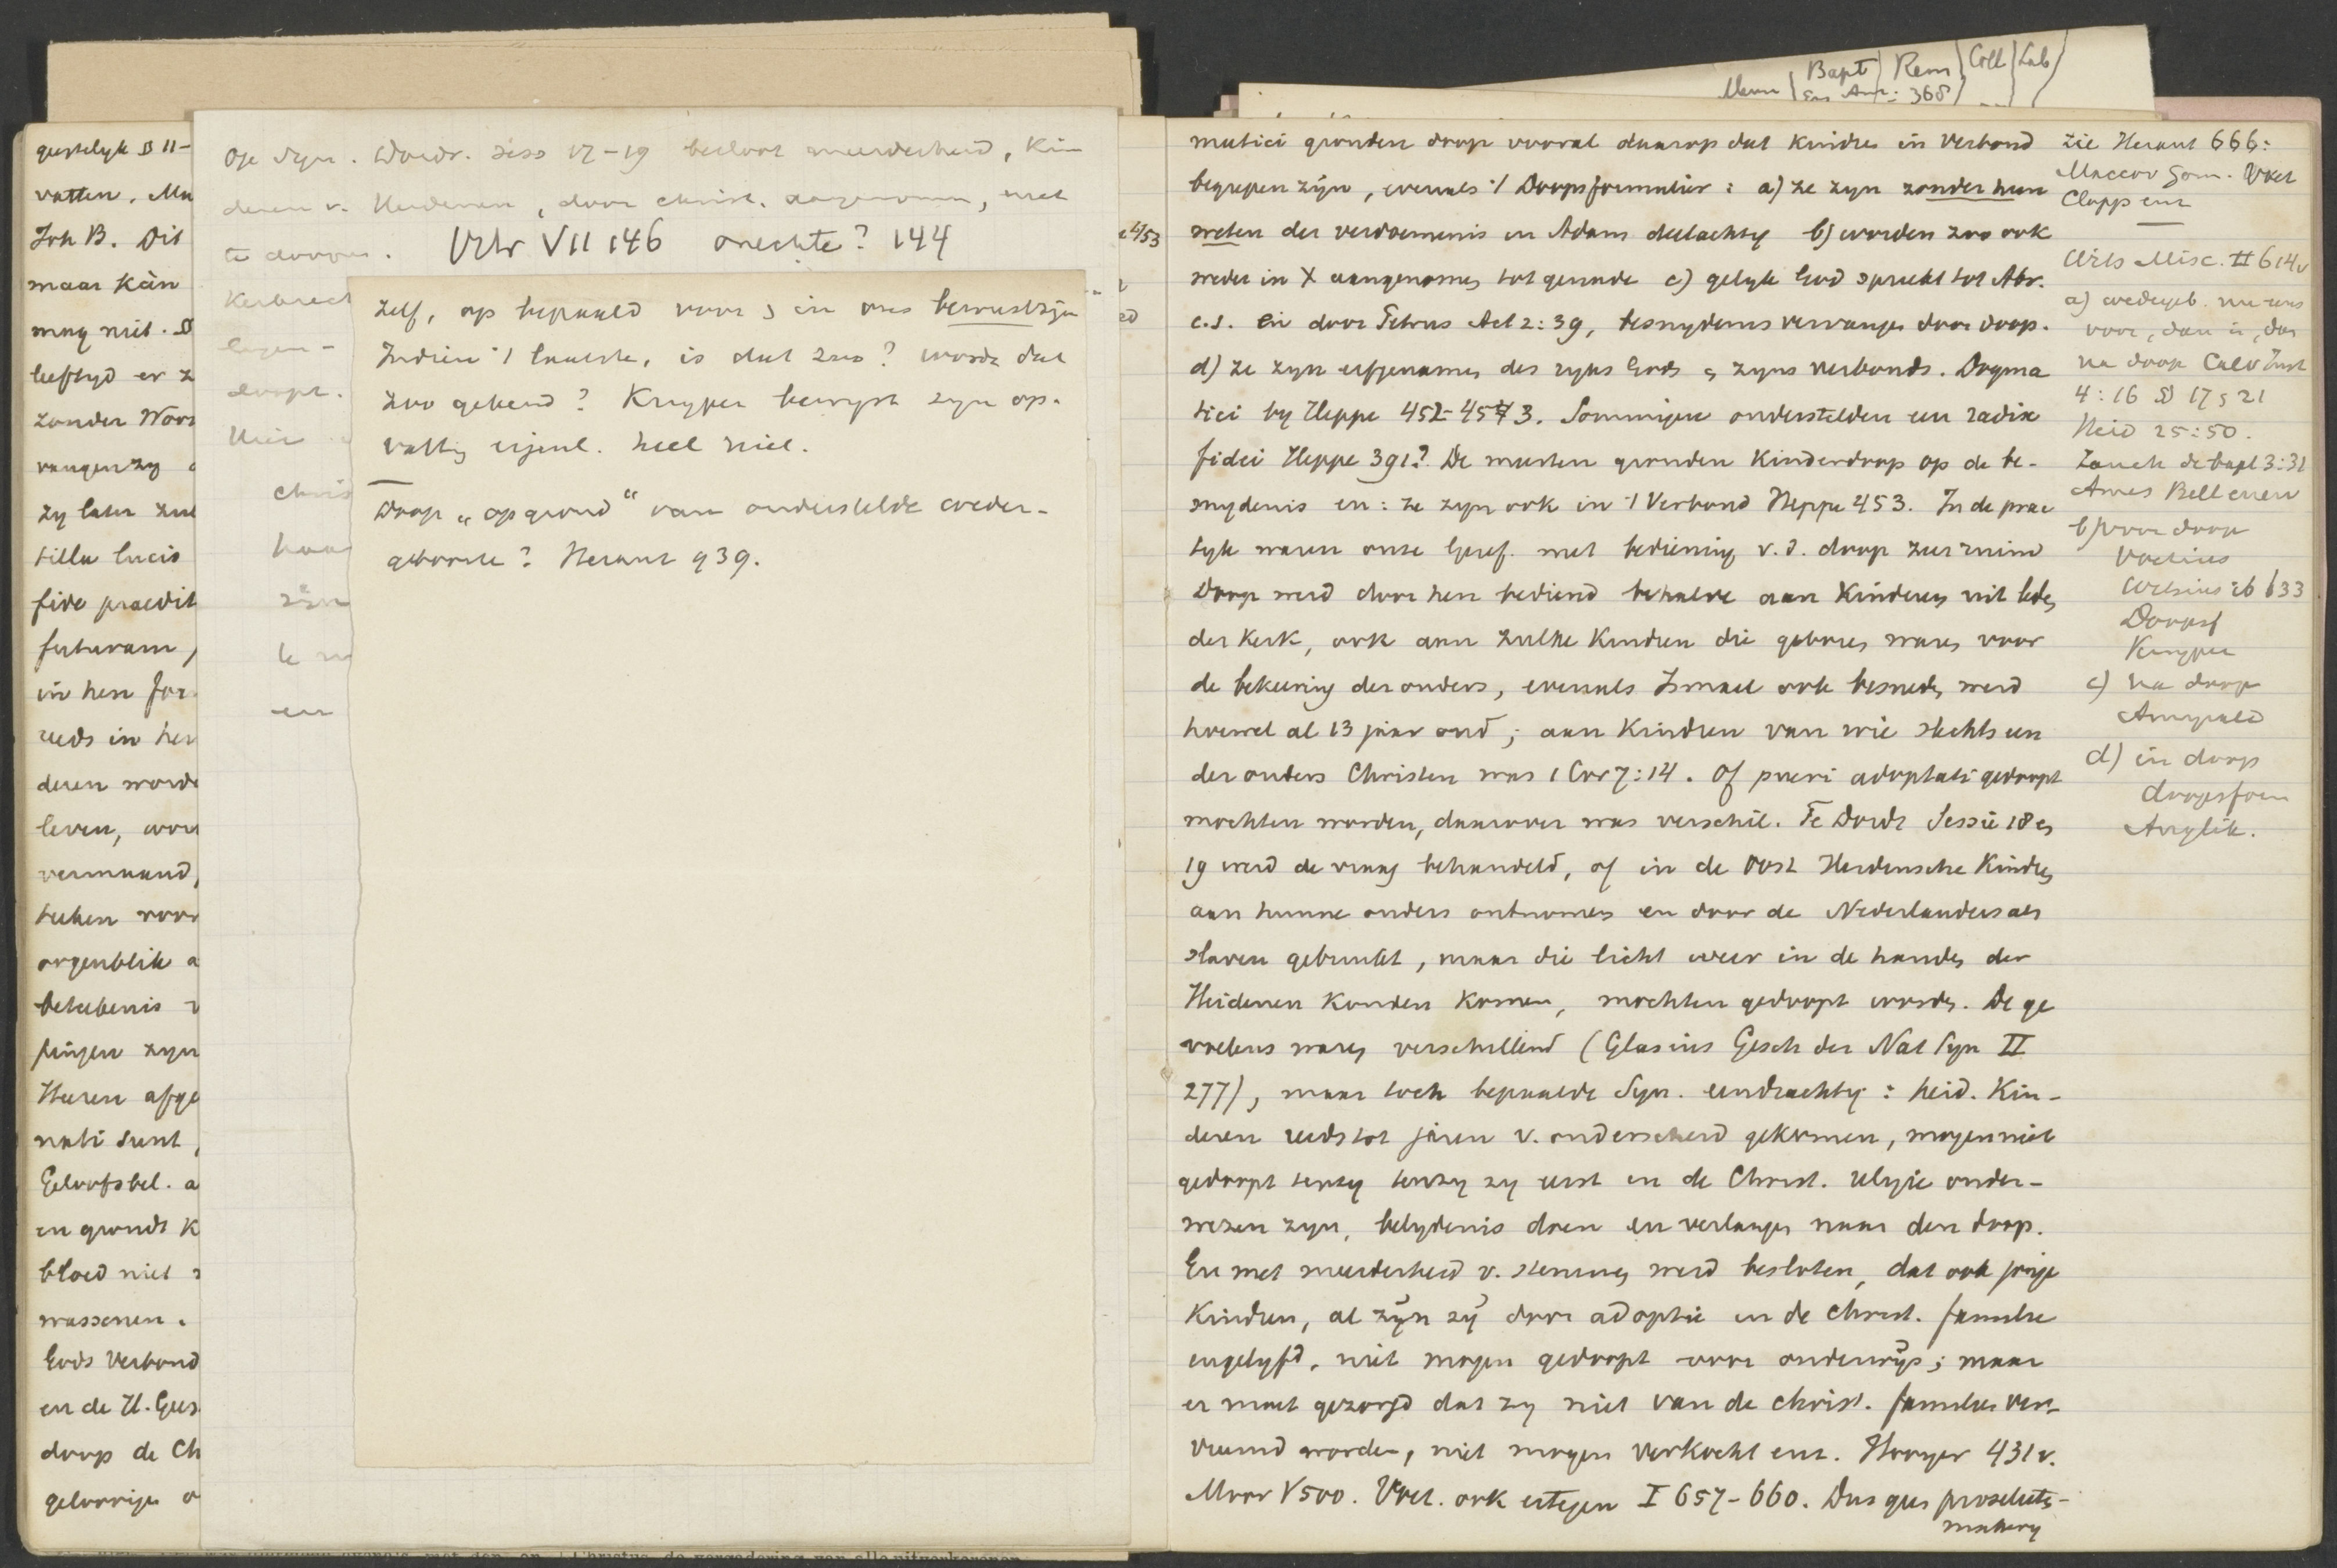 Bapt Rem Coll Lab
Menn Eng Amer: 368
geestelyk
vatten. Ma
Joh B. Dit
maar kàn
mag niet.
leeftyd er z
zonder Woor
vangen zy
zy later zul
tilla lucis
fide praedit
futuram,
in hen for
reeds in hen
deren worde
leven, wor
vermaand,
teeken voor
oogenblik a
beteekenis v
pingen zyn
Heeren afge
nati sunt,
Geloofsbel. a
en grondt K
bloed niet
wassenen.
Gods Verbond
en de H. Gees
doop de Ch
geloovige o
Op Syn. Dordr. sess 17-19 besloot meerderheid, Kin
deren v. Heidenen, door Christ. aangenomen, niet
te doopen. Vtr VII 146 onechte? 144
Kerkrecht
doopt.
Hier
chris
zijn
en
zelf, op bepaald voor & in ons bewustzijn
Indien 't laatste, is dat zoo? wordt dat
zoo gekend? Kuyper bewyst zyn op-
vattg eigenl. heel niet.
Doop „op grond“ van onderstelde weder-
geboorte? Heraut 939.
matici gronden doop vooral daarop dat kindren in Verbond
begrepen zyn, evenals 't Doopsformulier: a) ze zyn zonder hun
weten der verdoemenis in Adam deelachtig b) worden zoo ook
weder in X aangenomen tot genade c) gelyk God spreekt tot Abr.
c.s. en door Petrus Act 2:39, besnydenis vervangen door doop.
d) ze zyn erfgenamen des ryks Gods & zyns verbonds. Dogma
tici by Heppe 452-453. Sommigen onderstelden een radix
fidei Heppe 391? De meesten gronden kinderdoop op de be-
snydenis en: ze zyn ook in 't Verbond Heppe 453. In de prac
tyk waren onze Geref. met bediening v.d. doop zeer ruim
Doop werd door hen bediend behalve aan kinderen uit leden
der Kerk, ook aan zulke kindren die geboren waren voor
de bekeering der ouders, evenals Ismael ook besneden werd
hoewel al 13 jaar oud; aan kindren van wie slechts een
der ouders Christen was 1 Cor 7:14. Of pueri adoptati gedoopt
mochten worden, daarover was verschil. Te Dordt Sessie 18 en
19 werd de vraag behandeld, of in de Oost Heidensche Kindren
aan hunne ouders ontnomen en door de Nederlanders als
slaven gebruikt, maar die licht weer in de handen der
Heidenen konden komen, mochten gedoopt worden. De ge
voelens waren verschillend (Glasius Gesch der Nat Syn II
277), maar toch bepaalde Syn. eendrachtig: heid. Kin-
deren reeds tot jaren v. onderscheid gekomen, mogen niet
gedoopt tenzy tenzy zy eerst in de Christ. religie onder-
wezen zyn, belydenis doen en verlangen naar den doop.
En met meerderheid v. stemmen werd besloten, dat ook jonge
Kindren, al zÿn zÿ door adoptie in de Christ. familie
ingelyfd, niet mogen gedoopt voor onderwÿs; maar
er moet gezorgd dat zy niet van de christ. families ver-
vreemd worden, niet mogen verkocht enz. Hooyer 431 v.
Moor V 500. Voet. ook ertegen I 657-660. Dus geen proseliete-
makery
zie Heraut 666:
Maccov Gom. Voet
Cloppenb
Wits Misc. II 614v
a) wedergeb. nu eens
voor, dan in, dan
na doop Calv Inst
4:16 § 17 & 21
Heid 25:50.
Zanch de bapt 3:31
Ames Bell enerv
b) voor doop
Voetius
Witsius ib 633
Doopsf
Kuyper
c) na doop
Amyrald
d) in doop
doopsform
Anglik.